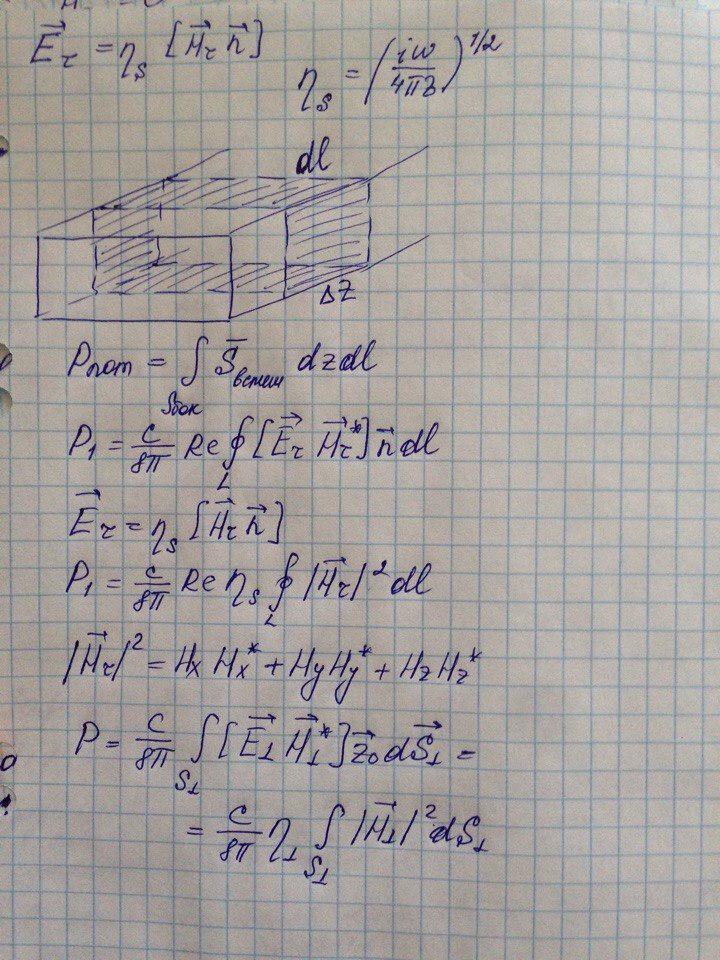 E⃗τ = ηs [H⃗τ n⃗]
ηs = (iω/4πσ)^1/2
dl
ΔZ
Pпот = ∫Sбок S̄ dzdl
P1 = c/8π Re ∮L [E⃗τ H⃗τ*] n⃗ dl
E⃗τ = ηs [H⃗τ n⃗]
P1 = c/8π Re ηs ∮L |H⃗τ|² dl
|H⃗τ|² = Hx Hx* + Hy Hy* + Hz Hz*
P = c/8π ∫S⊥ [E⃗⊥ H⃗⊥*] z⃗0 dS⃗⊥ =
= c/8π η⊥ ∫S⊥ |H⃗⊥|² dS⊥